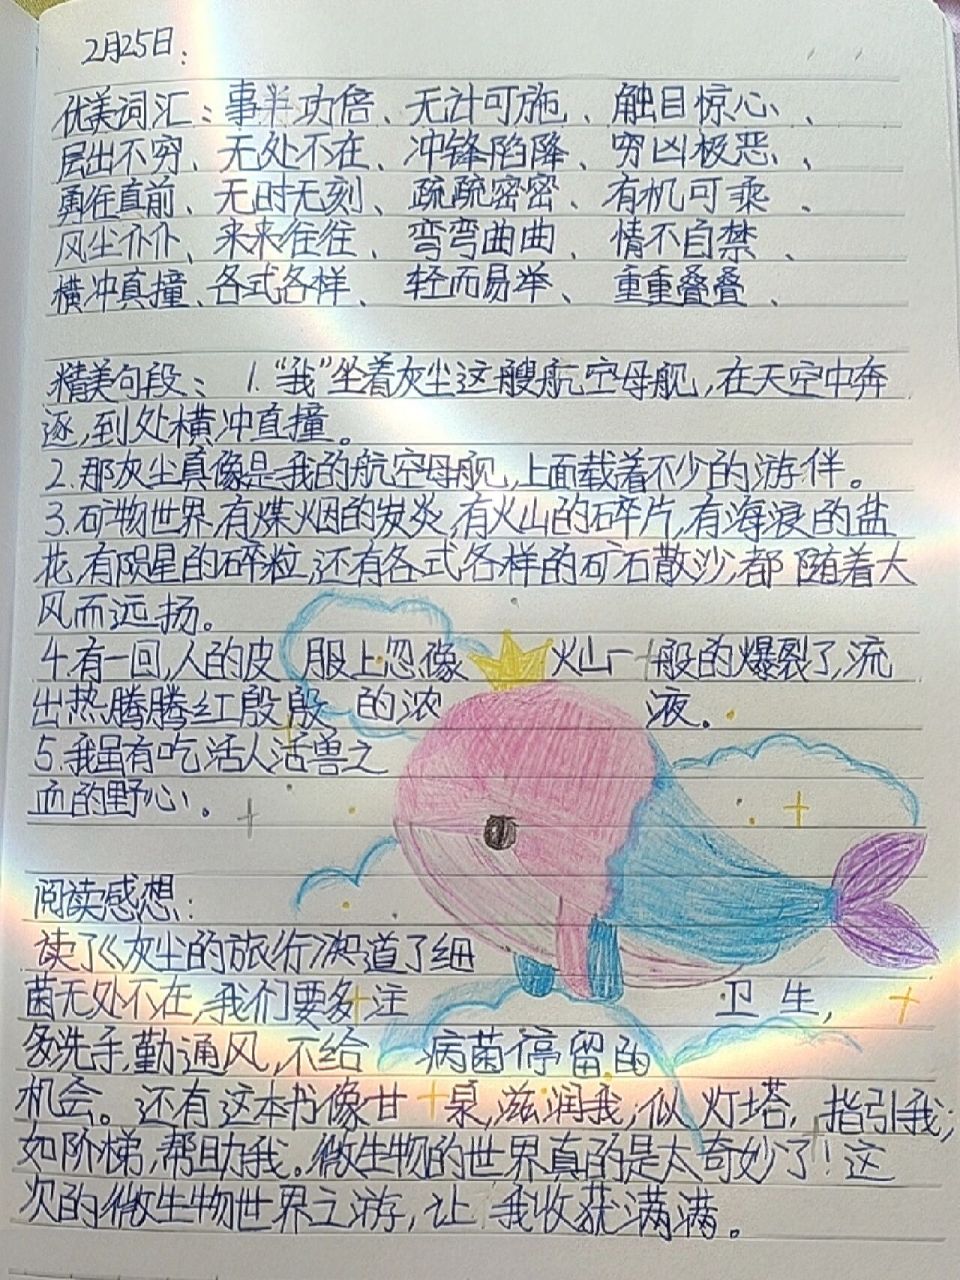 2月25日:
优美词汇：事半功倍、无计可施、触目惊心、
层出不穷、无处不在、冲锋陷降、穷凶极恶、
勇往直前、无时无刻、疏疏密密、有机可乘、
风尘仆仆、来来往往、弯弯曲曲、情不自禁、
横冲真撞、各式各样、轻而易举、重重叠叠、
精美句段：1.“我”坐着灰尘这艘航空母舰，在天空中奔
逐，到处横冲直撞。
2.那灰尘真像是我的航空母舰，上面载着不少的游伴。
3.矿物世界，有煤烟的发炎，有火山的碎片，有海浪的盐
花，有陨星的碎粒，还有各式各样的矿石散沙，都随着大
风而远扬。
4.有一回，人的皮服上忽像火山一般的爆裂了，流
出热腾腾红殷殷的浓液。
5.我虽有吃活人活兽之
血的野心。
阅读感想：
读了《灰尘的旅行》知道了细
菌无处不在，我们要多注卫生，
多洗手，勤通风，不给病菌停留的
机会。还有这本书像甘泉，滋润我，似灯塔，指引我；
如阶梯，帮助我。微生物的世界真的是太奇妙了！这
次的微生物世界之游，让我收获满满。